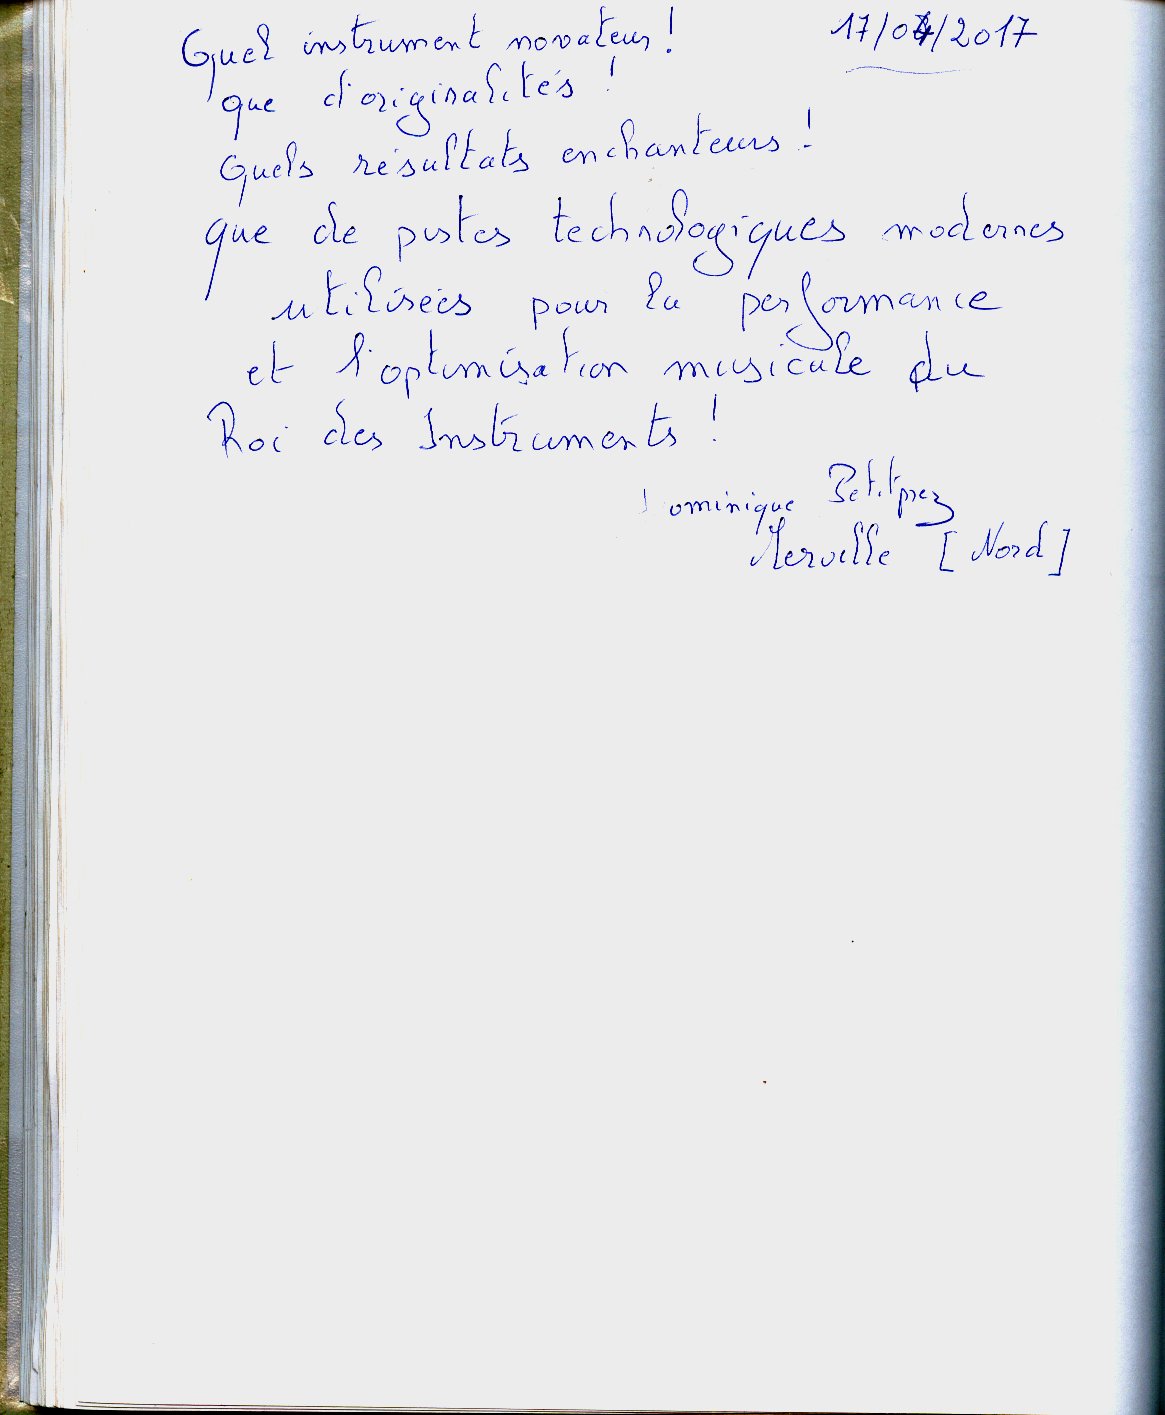 Quel instrument novateur ! 17/04/2017
que d'originalités !
Quels résultats enchanteurs !
que de pistes technologiques modernes
utilisées pour la performance
et l'optimisation musicale du
Roi des Instruments !
Dominique Petitprez
Merville [Nord]